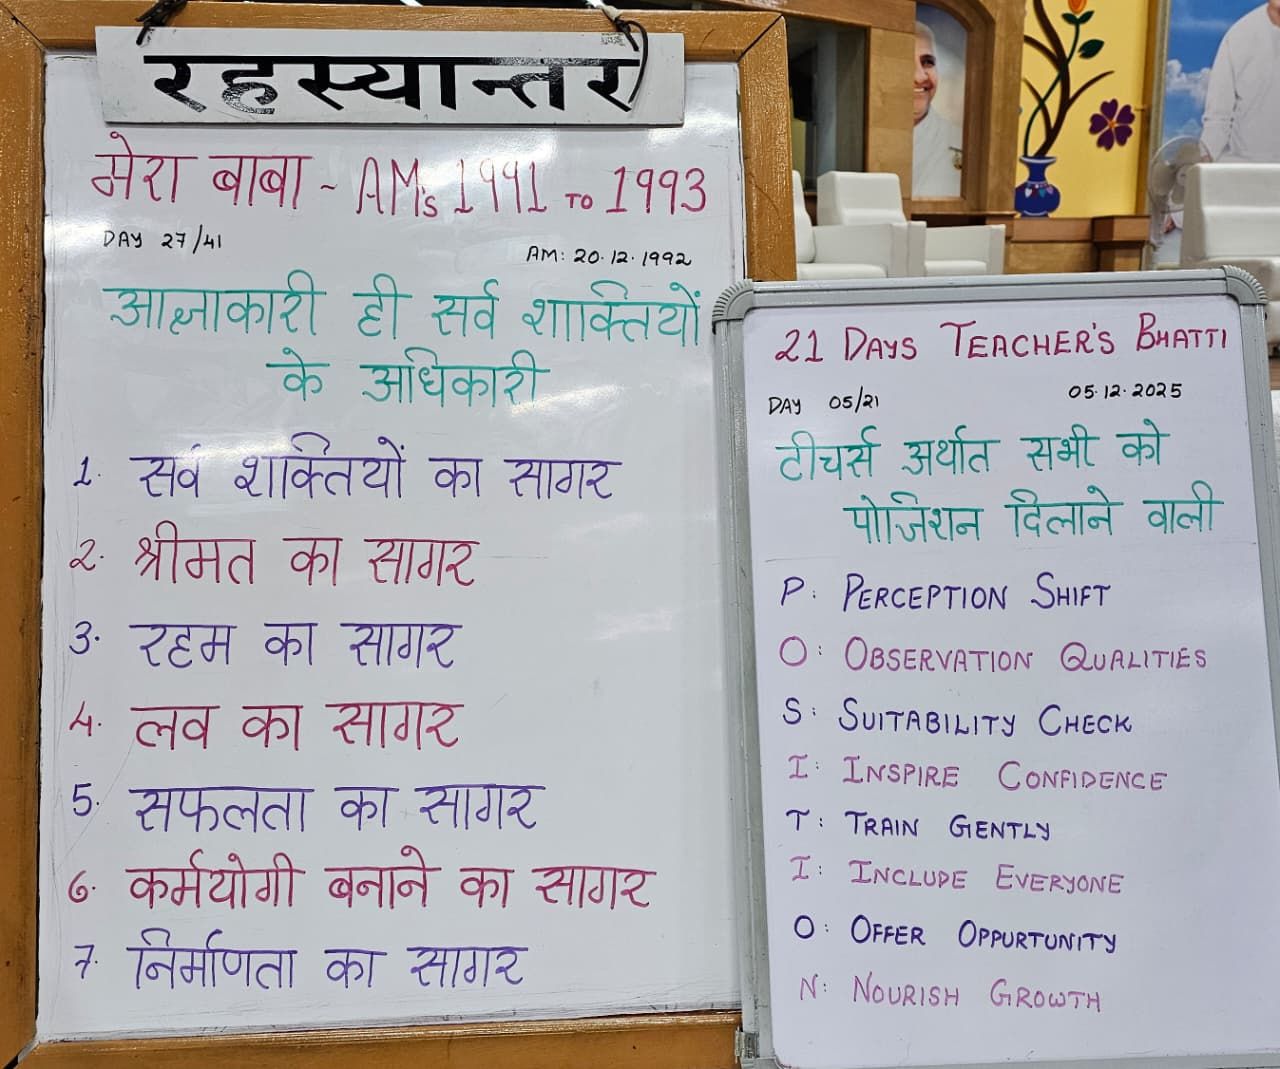 रहस्यान्तर
मेरा बाबा ~ AM's 1991 TO 1993
DAY 27/41
AM: 20.12.1992
आज्ञाकारी ही सर्व शाक्तियों
के अधिकारी
1. सर्व शक्तियों का सागर
2. श्रीमत का सागर
3. रहम का सागर
4. लव का सागर
5. सफलता का सागर
6. कर्मयोगी बनाने का सागर
7. निर्माणता का सागर
21 DAYS TEACHER'S BHATTI
DAY 05/21
05.12.2025
टीचर्स अर्थात सभी को
पोजिशन दिलाने वाली
P: PERCEPTION SHIFT
O: OBSERVATION QUALITIES
S: SUITABILITY CHECK
I: INSPIRE CONFIDENCE
T: TRAIN GENTLY
I: INCLUDE EVERYONE
O: OFFER OPPURTUNITY
N: NOURISH GROWTH